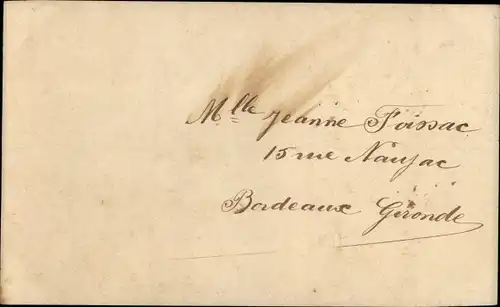 Mlle Jeanne Foissac
15 rue Naujac
Bordeaux Gironde